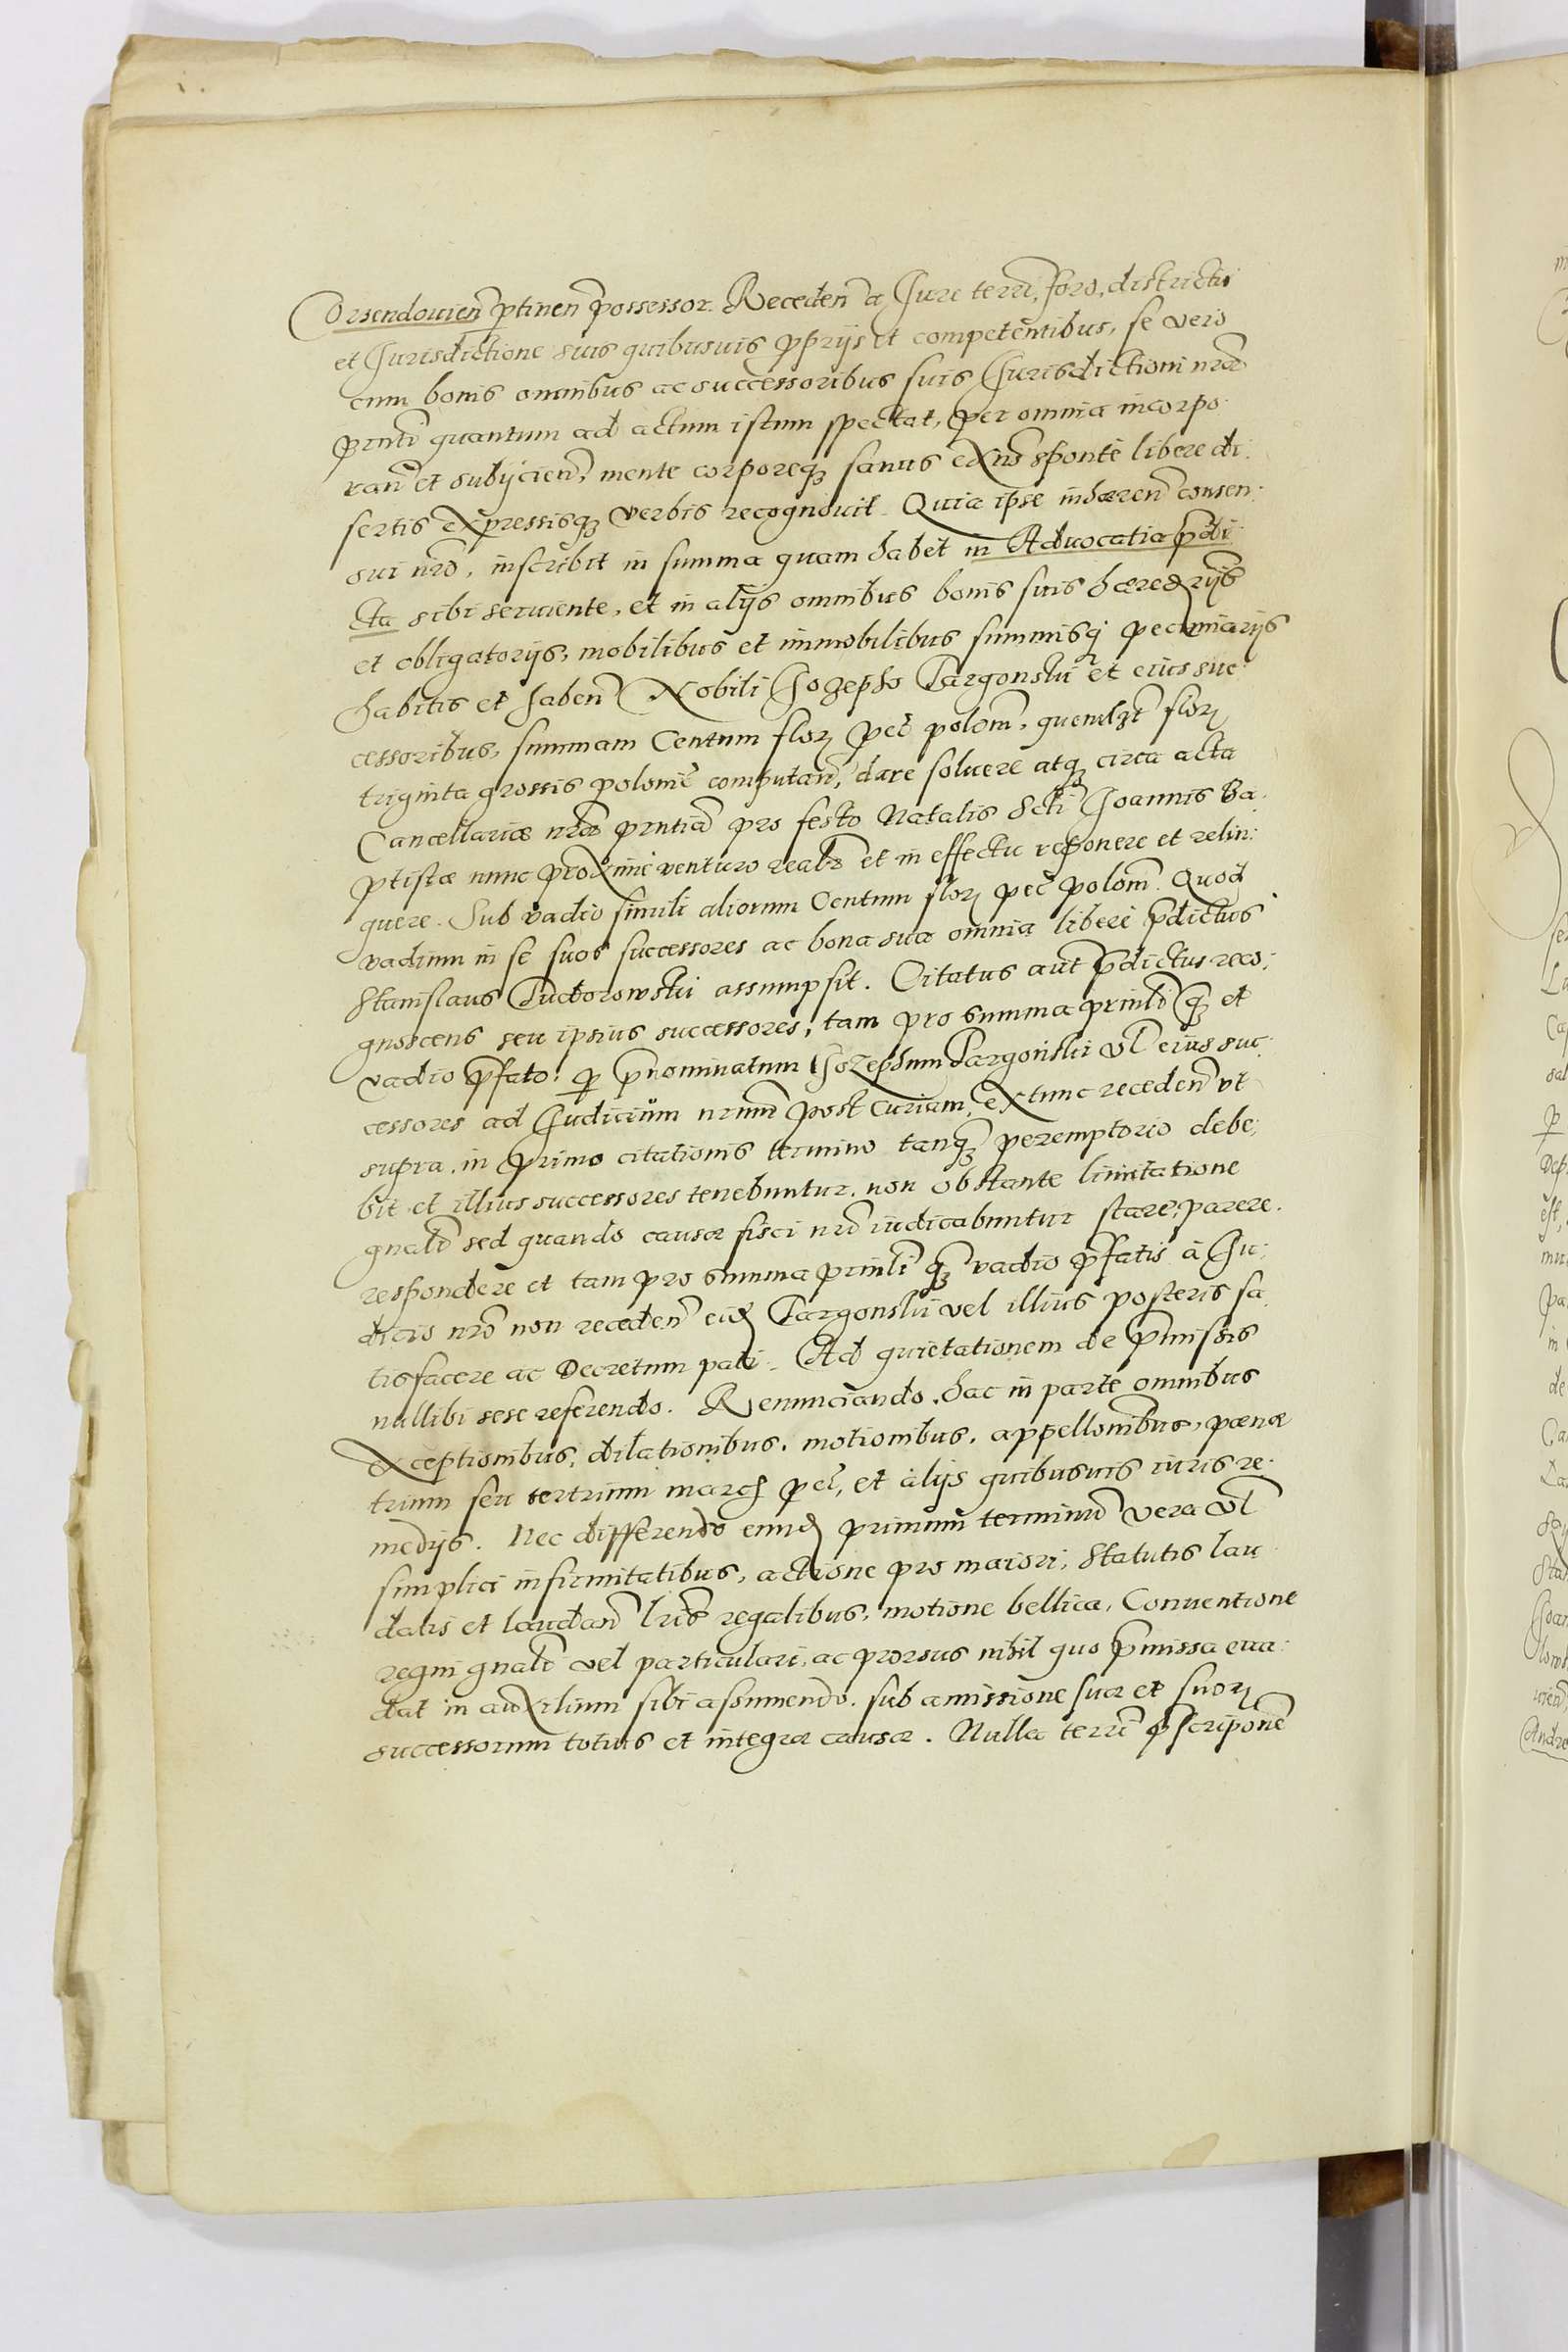 Orsendouien ptinen possessor. Receden a Jure terri, foro, districtu
et Jurisdictione suis quibusuis pprijs et competentibus, se vero
cum bonis omnibus ac successoribus suis Jurisdictioni nrae
prnti quantum ad actum istum spectat, per omnia incorpo:
ran et subijcien, mente corporeq3 sanus exns sponte libere di:
sertis expressisq3 verbis recognouit. Quia ipse inhaeren consen:
sui nro, inscribit in summa quam habet in Aduocatia pdi:
cta sibi seruiente, et in alijs omnibus bonis suis haeredrijs
et obligatorijs, mobilibus et immobilibus summisq3 pecuniarijs
habitis et haben Nobili Jozepho Targonski et eius suc:
cessoribus, summam Centum flor pec polonl, quemlzt flor
triginta grossis polonic computan, dare soluere atq3 circa acta
Cancellariae nrae prntia pro festo Natalis Scti Joannis Ba:
ptistae nunc proxime venturo realr et in effectu reponere et relin:
quere. Sub vadio simili aliorum Centum flor pec polonl. Quod
vadium in se suos successores ac bona sua omnia libere pdictus
Stanislaus Tuctorowski assumpsit. Citatus aut pdictus reco:
gnoscens seu ipsius successores, tam pro summa prinli q3 et
vadio pfato, p pnominatum Jozephum Targonski vl eius suc:
cessores ad Judicium nrum post Curiam, extunc receden vt
supra, in primo citationis termino tanq3 peremptorio debe:
bit et illius successores tenebuntur, non obstante limitatione
gnali sed quando causae fisci nri iudicabuntur stare, parere.
respondere et tam pro summa prinli q3 vadio pfatis a Ju:
dicio nro non receden eid Targonski vel illius posteris sa:
tisfacere ac Decretum pati. Ad quietationem de pmissis
nullibi sese referendo. Renunciando, hac in parte omnibus
exceptionibus, dilationibus, motionibus, appellonibus, paenae
trium seu tertrium march pec, et alijs quibusuis iuris re:
medijs. Nec differendo eund primum terminu vera vl
simplici infirmitatibus, actione pro maiori, Statutis lau
datis et laudan lris regalibus, motione bellica, Conuentione
regni gnali vel particulari, ac prorsus nihil quo pmissa eua:
dat in auxilium sibi assumendo, sub amissione sua et suor
successorum totius et integrae causae. Nulla terri pscriptionē